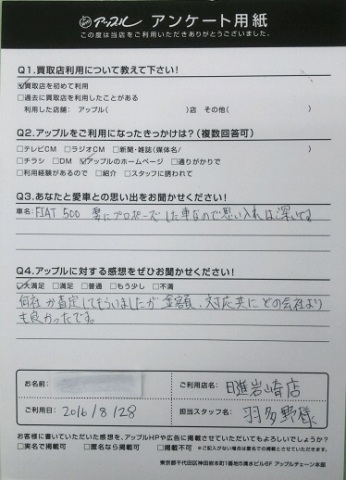 アップル アンケート用紙
この度は当店をご利用いただきありがとうございました。
Q1.買取店利用について教えて下さい!
☑買取店を初めて利用
□過去に買取店を利用したことがある
利用した店舗: アップル( )店 その他( )
Q2.アップルをご利用になったきっかけは?(複数回答可)
□テレビCM □ラジオCM □新聞・雑誌(媒体名/ )
□チラシ □DM ☑アップルのホームページ □通りがかりで
□利用経験があるので □紹介 □スタッフに誘われて
Q3.あなたと愛車との思い出をお聞かせください!
車名: FIAT 500 妻にプロポーズした車なので思い入れは深いです
Q4.アップルに対する感想をぜひお聞かせください!
☑大満足 □満足 □普通 □もう少し □不満
何社か査定してもらいましたが金額、対応共にどの会社より
も良かったです。
お名前:
ご利用店名: 日進岩崎店
ご利用日: 2016/8/28
担当スタッフ名: 羽多野様
お客様に書いていただいた感想を、アップルHPや広告に掲載させていただいてもよろしいでしょうか?
□実名で掲載可 □匿名なら掲載可 □掲載不可 ※ご記入がない場合は匿名での掲載とさせていただきます。
東京都千代田区神田岩本町1番地5清水ビル6F アップルチェーン本部